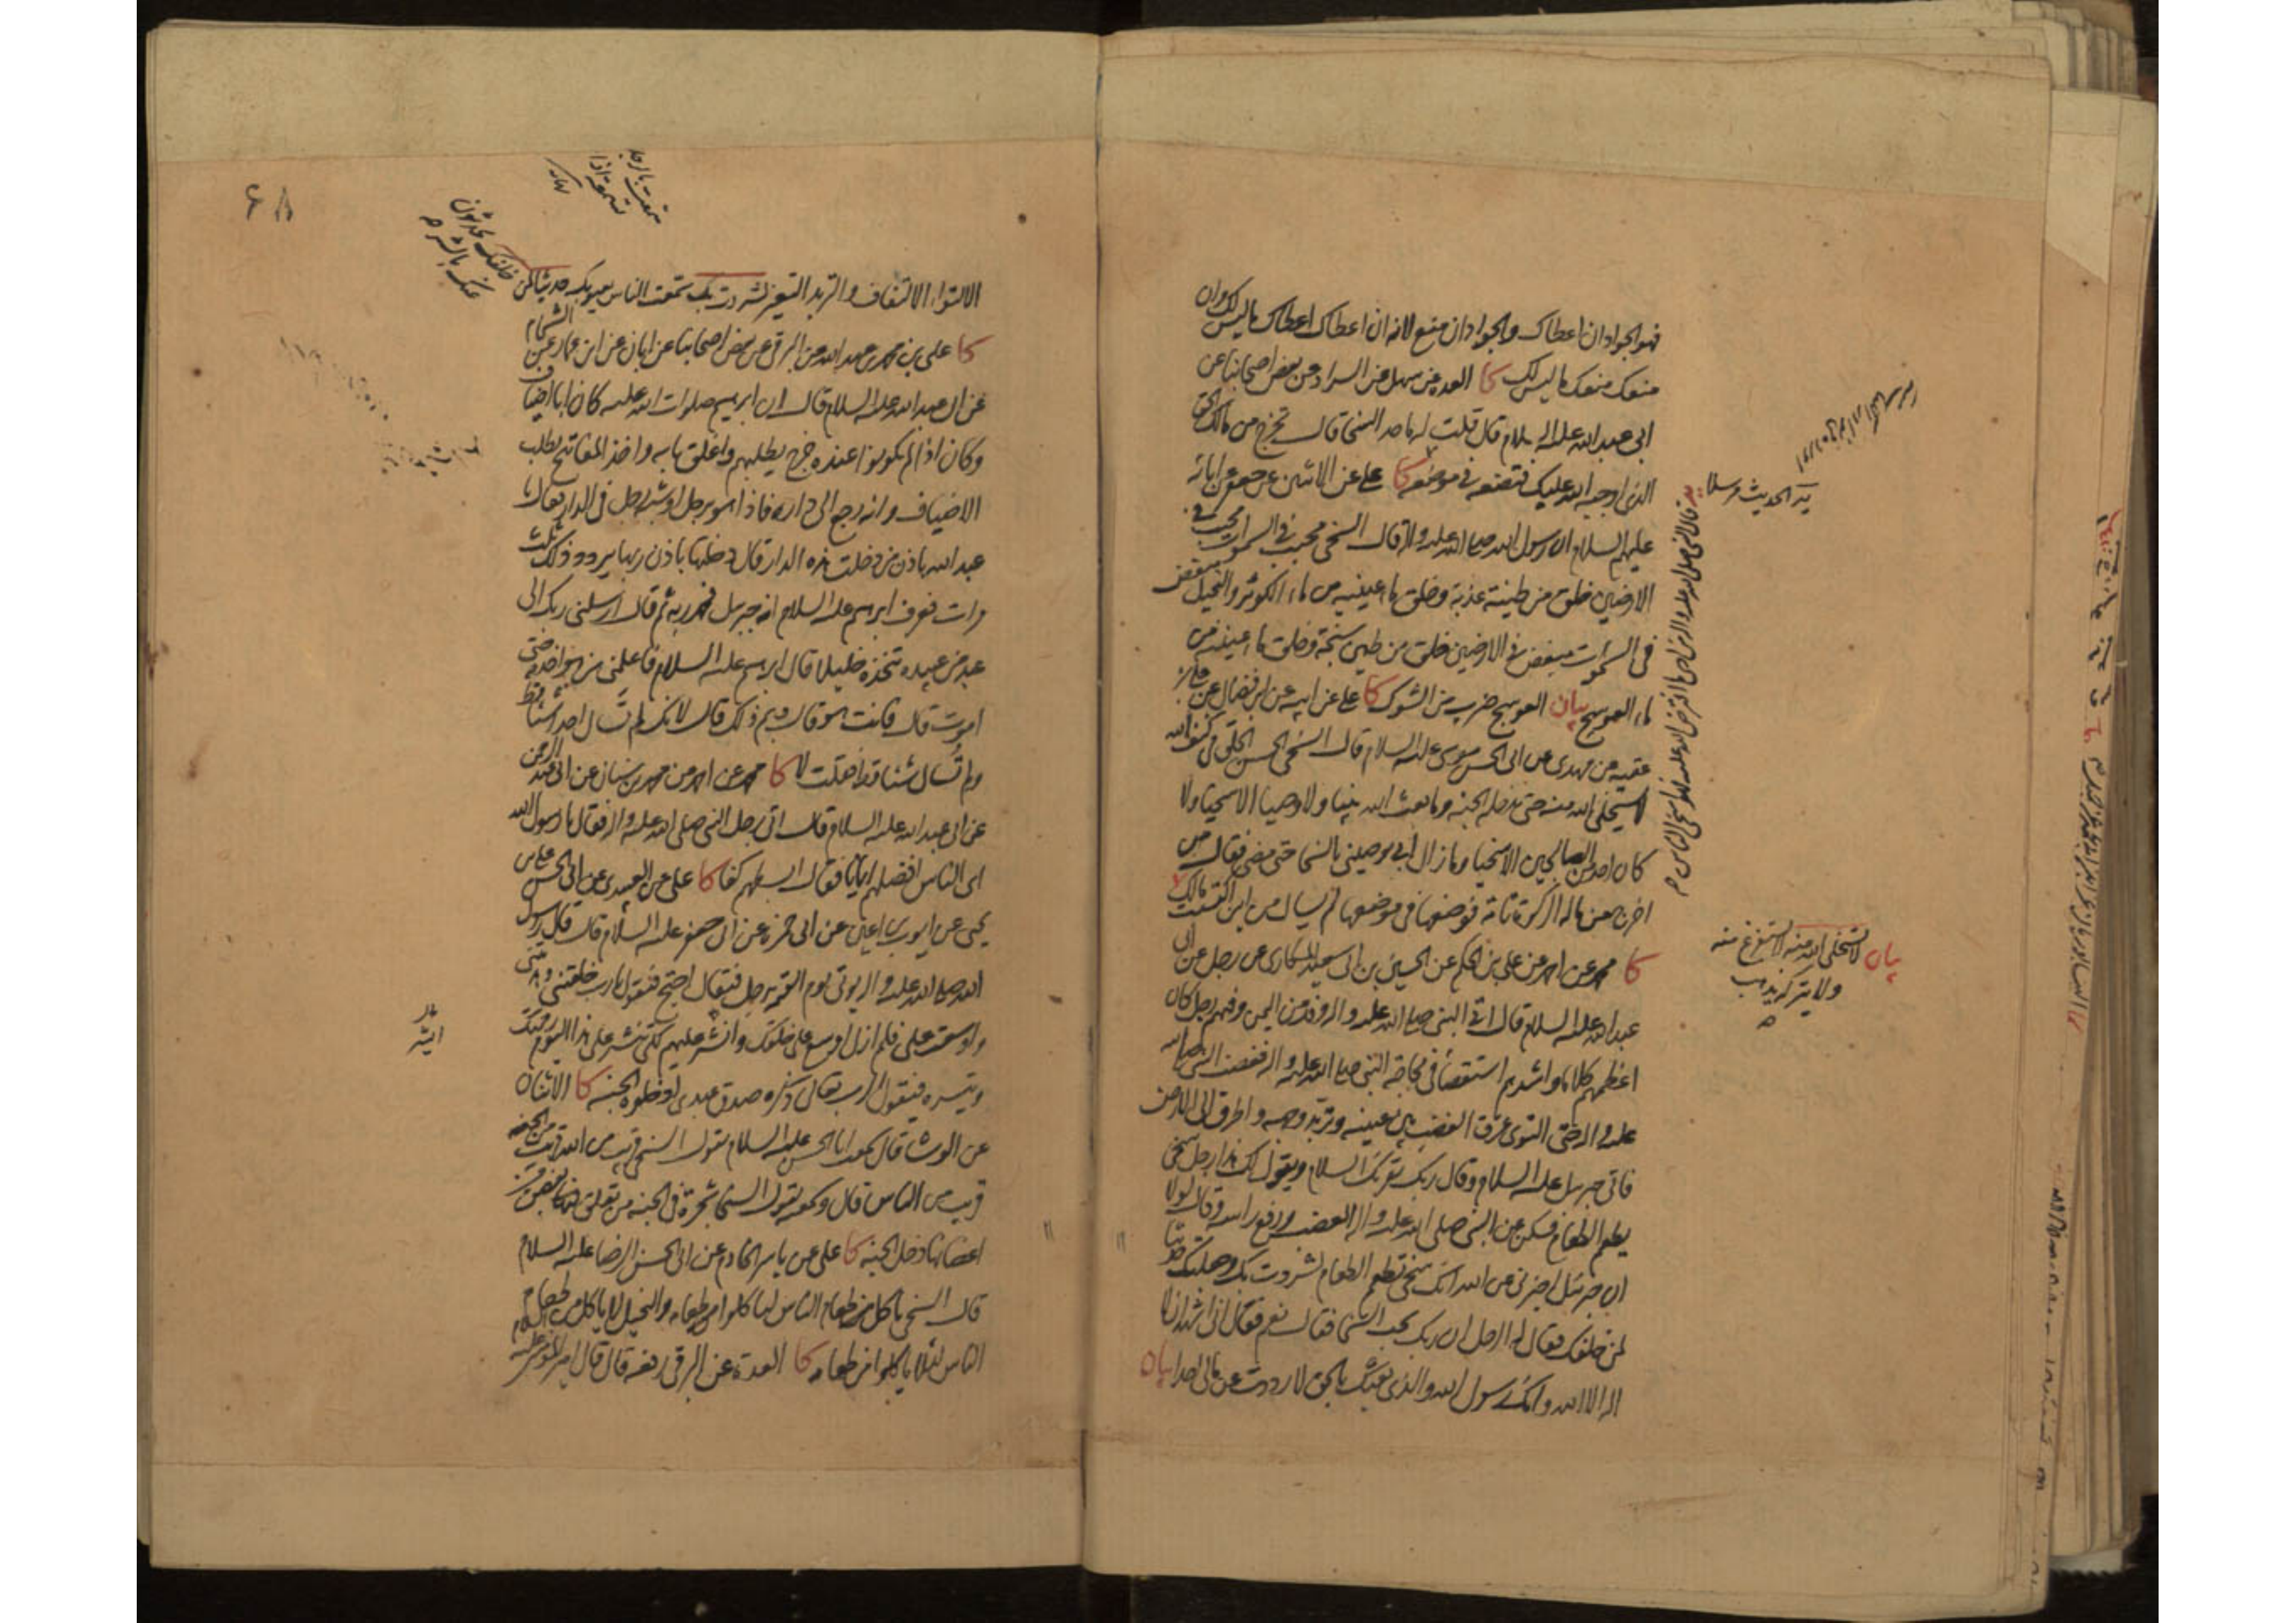 فهو الجواد ان اعطاك والجواد ان منع لانه ان اعطاك اعطاك ما ليس لك وان
منعك منعك ما ليس لك كا العدة عن سهل عن السراد عن بعض اصحابنا عن
ابى عبد الله عليه السلام قال قلت له ما حد السخا قال تخرج من مالك الحق
الذى اوجبه الله عليك فتضعه فى موضعه كا على عن الاثنين عن جعفر عن ابائه
عليهم السلام ان رسول الله صلى الله عليه واله قال السخى محبب فى السموات محبب فى
الارضين خلق من طينة عذبة وخلق ماء عينيه من ماء الكوثر والبخيل مبغض
فى السموات مبغض فى الارضين خلق من طين سبخة وخلق ماء عينيه من
ماء العوسج بيان العوسج ضرب من الشوك كا على عن ابيه عن ابن فضال عن على بن
عقبه عن مهدى عن ابى الحسن موسى عليه السلام قال السخى الحسن الخلق فى كنف الله
لا يستخلى الله منه حتى يدخله الجنه وما بعث الله نبيا ولا وصيا الا سخيا ولا
كان احد من الصالحين الا سخيا وما زال ابى يوصينى بالسخا حتى مضى فقال من
اخرج من ماله الزكوة تامة فوضعها فى موضعها لم يسال من اين اكتسبت مالك
كا محمد عن احمد عن على بن الحكم عن الحسين بن ابى سعيد المكارى عن رجل عن ابى
عبد الله عليه السلام قال اتى النبى صلى الله عليه واله وفد من اليمن وفيهم رجل كان
اعظمهم كلاما واشدهم استقصاء فى محاجة النبى صلى الله عليه واله فغضب النبى صلى الله
عليه واله حتى التوى عرق الغضب بين عينيه وتربد وجهه واطرق الى الارض
فاتى جبرئيل عليه السلام وقال ربك يقرئك السلام ويقول لك هذا رجل سخى
يطعم الطعام فسكن عن النبى صلى الله عليه واله الغضب ورفع راسه وقال لولا
ان جبرئيل اخبرنى عن الله انك سخى تطعم الطعام لشردت بك وجعلتك حديثا
لمن خلفك فقال له الرجل ان ربك يحب السخا فقال نعم فقال انى اشهد ان لا
اله الا الله وانك رسول الله والذى بعثك بالحق لا رددت عن مالى احدا بيان
بيان لا يستخلى الله منه لا يستفرغ منه
ولا يتركه يذهب
الالتواء الالتفاف والتربد التغير لشردت بك سمعت الناس بعيوبك حديثا لمن
خلفك
كا على بن محمد بن عبد الله عن البرقى عن بعض اصحابنا عن ابان عن ابن عمار عن الشحام
عن ابى عبد الله عليه السلام قال ان ابرهيم صلوات الله عليه كان ابا اضياف
وكان اذا لم يكونوا عنده خرج يطلبهم واغلق بابه واخذ المفاتيح يطلب
الاضياف وانه رجع الى داره فاذا هو برجل او شبه رجل فى الدار فقال يا
عبد الله باذن من دخلت هذه الدار قال دخلتها باذن ربها يردد ذلك ثلث
مرات فعرف ابرهيم عليه السلام انه جبرئيل فحمد ربه ثم قال ارسلنى ربك الى
عبد من عبيده يتخذه خليلا قال ابرهيم عليه السلام فاعلمنى من هو اخدمه حتى
اموت قال فانت هو قال وبم ذلك قال لانك لم تسال احدا شيئا قط
ولم تسال شيئا قط فقلت لا كا محمد عن احمد عن محمد بن سنان عن ابى عبد الرحمن
عن ابى عبد الله عليه السلام قال اتى رجل النبى صلى الله عليه واله فقال يا رسول الله
اى الناس افضلهم ايمانا فقال ابسطهم كفا كا على عن العبيدى عن ابى الحسن على بن
يحيى عن ايوب بن اعين عن ابى حمزة عن ابى جعفر عليه السلام قال قال رسول
الله صلى الله عليه واله يوتى يوم القيمة برجل فيقال احتج فيقول يا رب خلقتنى وهديتنى
واوسعت على فلم ازل اوسع على خلقك وانشر عليهم لكى تنشر على هذا اليوم رحمتك
وتيسره فيقول الرب تعالى ذكره صدق عبدى ادخلوه الجنه كا الاثنان
عن الوشا قال سمعت ابا الحسن عليه السلام يقول السخى قريب من الله قريب من الجنه
قريب من الناس قال وسمعته يقول السخا شجرة فى الجنه من تعلق بغصن من
اغصانها دخل الجنه كا على عن ياسر الخادم عن ابى الحسن الرضا عليه السلام
قال السخى ياكل من طعام الناس لياكلوا من طعامه والبخيل لا ياكل من طعام
الناس لئلا ياكلوا من طعامه كا العدة عن البرقى رفعه قال قال امير المؤمنين عليه السلام